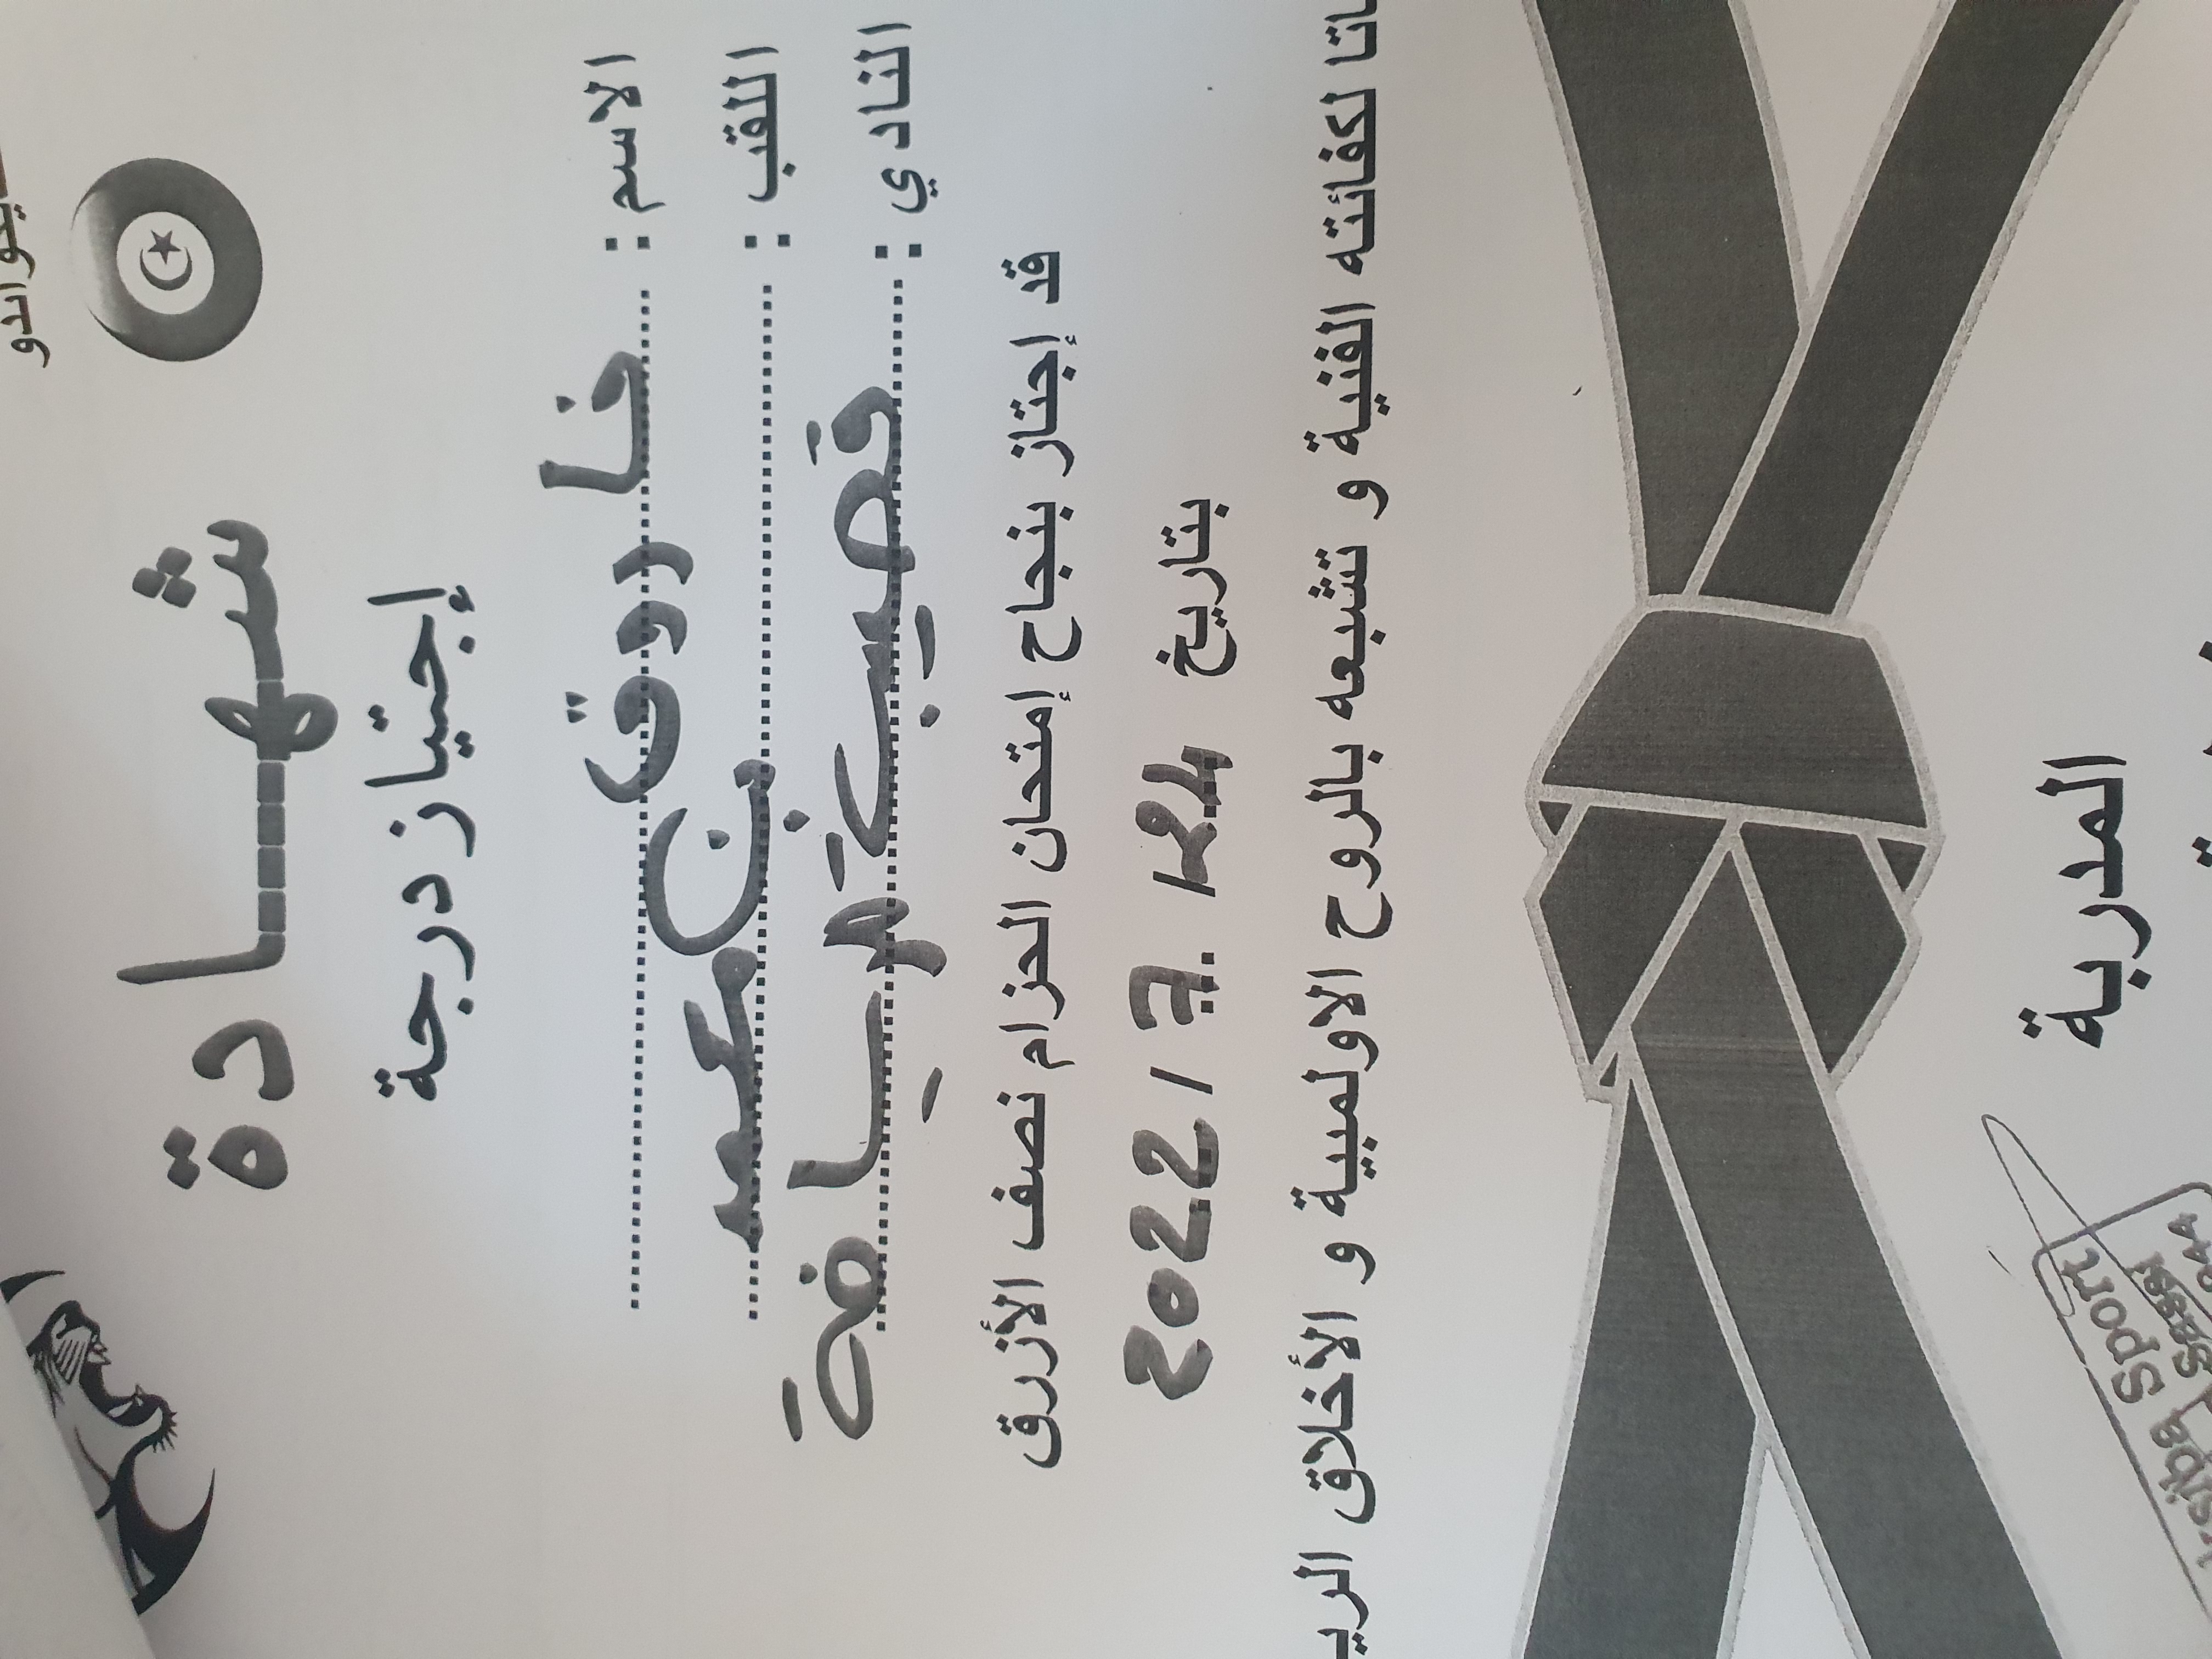 يكواندو
شهادة
إجتياز درجة
الاسم : فاروق
اللقب : بن عمر
النادي : قصيبة رياضة
قد إجتاز بنجاح إمتحان الحزام نصف الأزرق
بتاريخ 24 / 7 / 2022
لكفائته الفنية و تشبعه بالروح الاولمبية و الأخلاق
المدربة
Sport